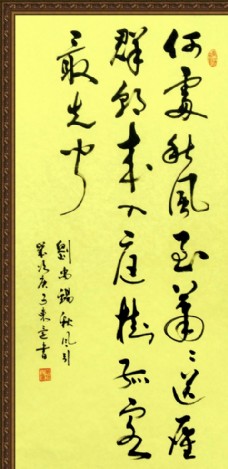 何處秋風至蕭〻送雁
群朝来入庭樹孤客
最先聞
劉禹錫秋風引
歲次庚子書